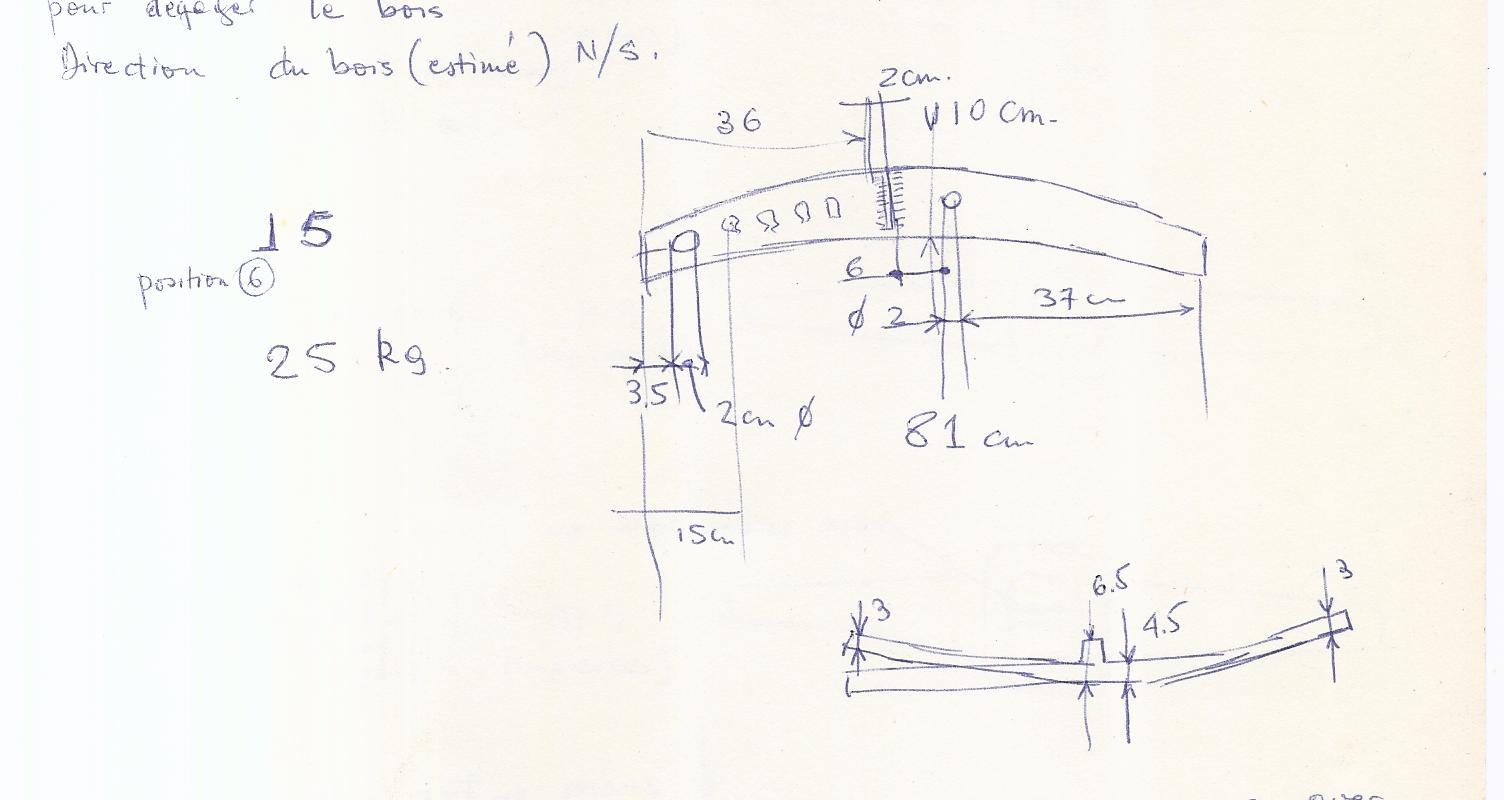 pour dégager le bois
Direction du bois (estimé) N/S.
2 cm.
36
10 cm.
15
position 6
6
37 cm
ϕ 2
25 kg.
3.5
2 cm ϕ
81 cm
15 cm
6.5
3
3
4.5